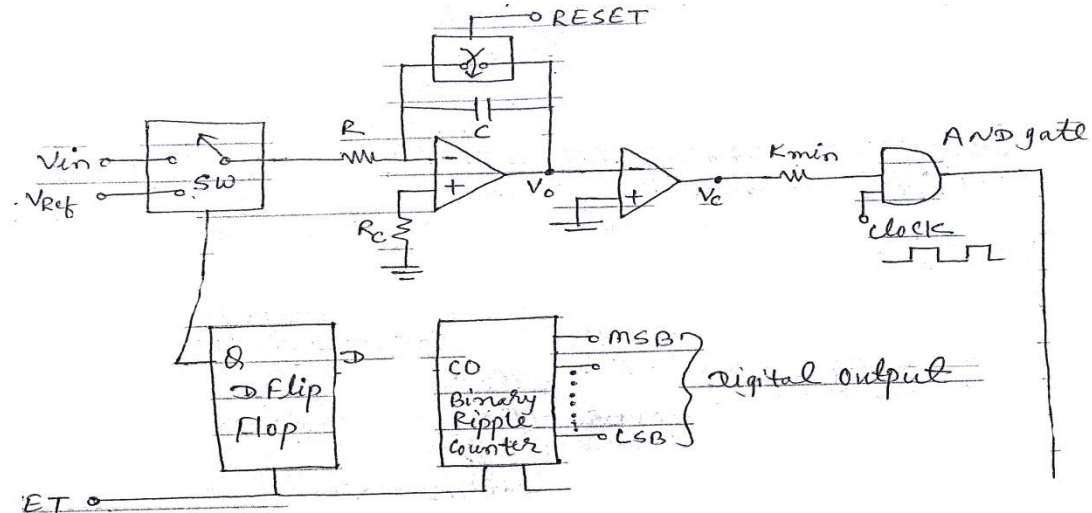 RESET
R
C
Vin
VRef
SW
-
+
RC
Vo
-
+
VC
Kmin
AND gate
clock
Q
D
D Flip
Flop
CO
Binary
Ripple
Counter
MSB
LSB
Digital output
ET